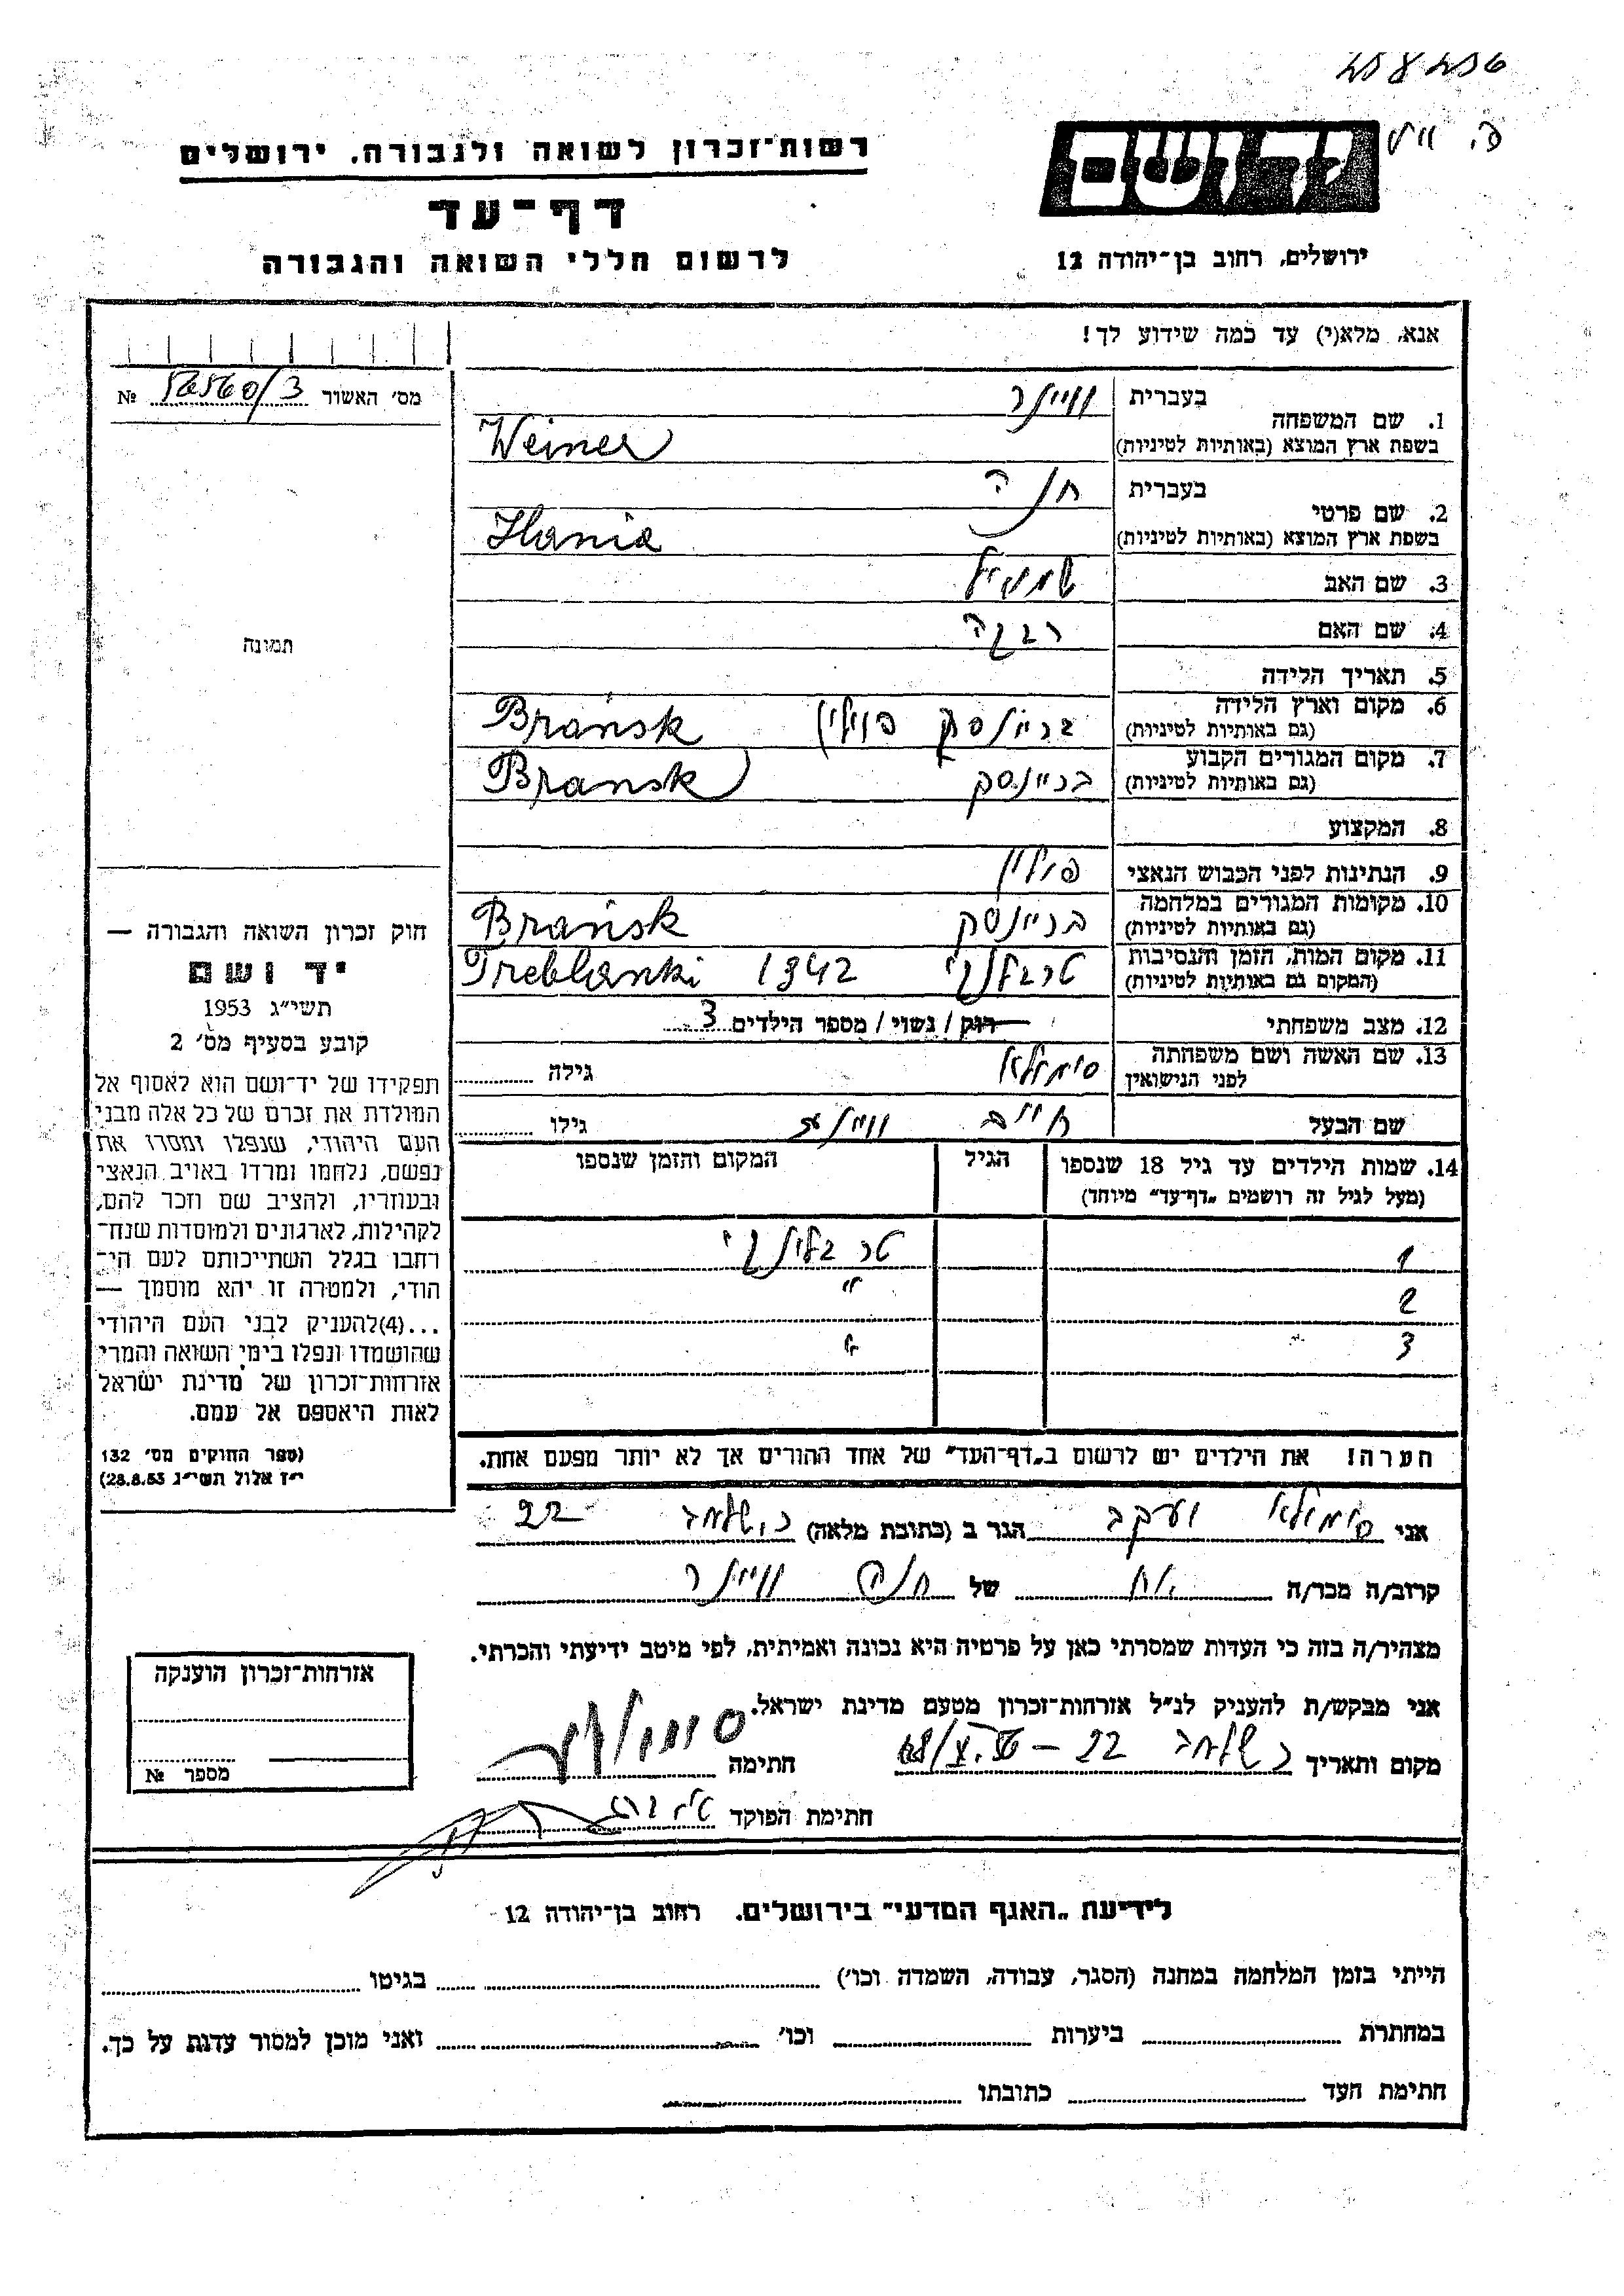 258256
יד ושם
רשות־זכרון לשואה ולגבורה, ירושלים
דף־עד
לרשום חללי השואה והגבורה
ירושלים, רחוב בן־יהודה 12
אנא, מלא(י) עד כמה שידוע לך!
מס' האשור 56560/3 №
תמונה
1. שם המשפחה
בעברית ווינר
בשפת ארץ המוצא (באותיות לטיניות) Weiner
2. שם פרטי
בעברית חנה
בשפת ארץ המוצא (באותיות לטיניות) Hania
3. שם האב שמואל
4. שם האם רבקה
5. תאריך הלידה
6. מקום וארץ הלידה
(גם באותיות לטיניות) בריינסק פוילין Brańsk
7. מקום המגורים הקבוע
(גם באותיות לטיניות) בריינסק Bransk
8. המקצוע
9. הנתינות לפני הכבוש הנאצי פולין
10. מקומות המגורים במלחמה
(גם באותיות לטיניות) בריינסק Brańsk
11. מקום המות, הזמן והנסיבות
(המקום גם באותיות לטיניות) טרבלנקי 1942 Treblanki
12. מצב משפחתי רוק / נשוי / מספר הילדים 3
13. שם האשה ושם משפחתה
לפני הנישואין גילה
שם הבעל חיים גילו
14. שמות הילדים עד גיל 18 שנספו
(מעל לגיל זה רושמים „דף־עד" מיוחד)
הגיל
המקום והזמן שנספו
1 טרבלינקי
2 "
3 "
הערה! את הילדים יש לרשום ב„דף־העד" של אחד ההורים אך לא יותר מפעם אחת.
חוק זכרון השואה והגבורה —
יד ושם
תשי"ג 1953
קובע בסעיף מס' 2
תפקידו של יד־ושם הוא לאסוף אל
המולדת את זכרם של כל אלה מבני
העם היהודי, שנפלו ומסרו את
נפשם, נלחמו ומרדו באויב הנאצי
ובעוזריו, ולהציב שם וזכר להם,
לקהילות, לארגונים ולמוסדות שנח־
רחבו בגלל השתייכותם לעם הי־
הודי, ולמטרה זו יהא מוסמך —
...(4)להעניק לבני העם היהודי
שהושמדו ונפלו בימי השואה והמרי
אזרחות־זכרון של מדינת ישראל
לאות היאספם אל עמם.
(ספר החוקים מס' 132
י"ז אלול תשי"ג 28.8.53)
אני יעקב הגר ב (כתובת מלאה) 22
קרוב/ה מכר/ה אח של חנה ווינר
מצהיר/ה בזה כי העדות שמסרתי כאן על פרטיה היא נכונה ואמיתית, לפי מיטב ידיעתי והכרתי.
אני מבקש/ת להעניק לנ"ל אזרחות־זכרון מטעם מדינת ישראל.
מקום ותאריך 22 חתימה
חתימת הפוקד
אזרחות־זכרון הוענקה
מספר №
לידיעת „האגף המדעי" בירושלים. רחוב בן־יהודה 12
הייתי בזמן המלחמה במחנה (הסגר, עבודה, השמדה וכו') בגיטו
במחתרת ביערות וכו' ואני מוכן למסור עדות על כך.
חתימת העד כתובתו